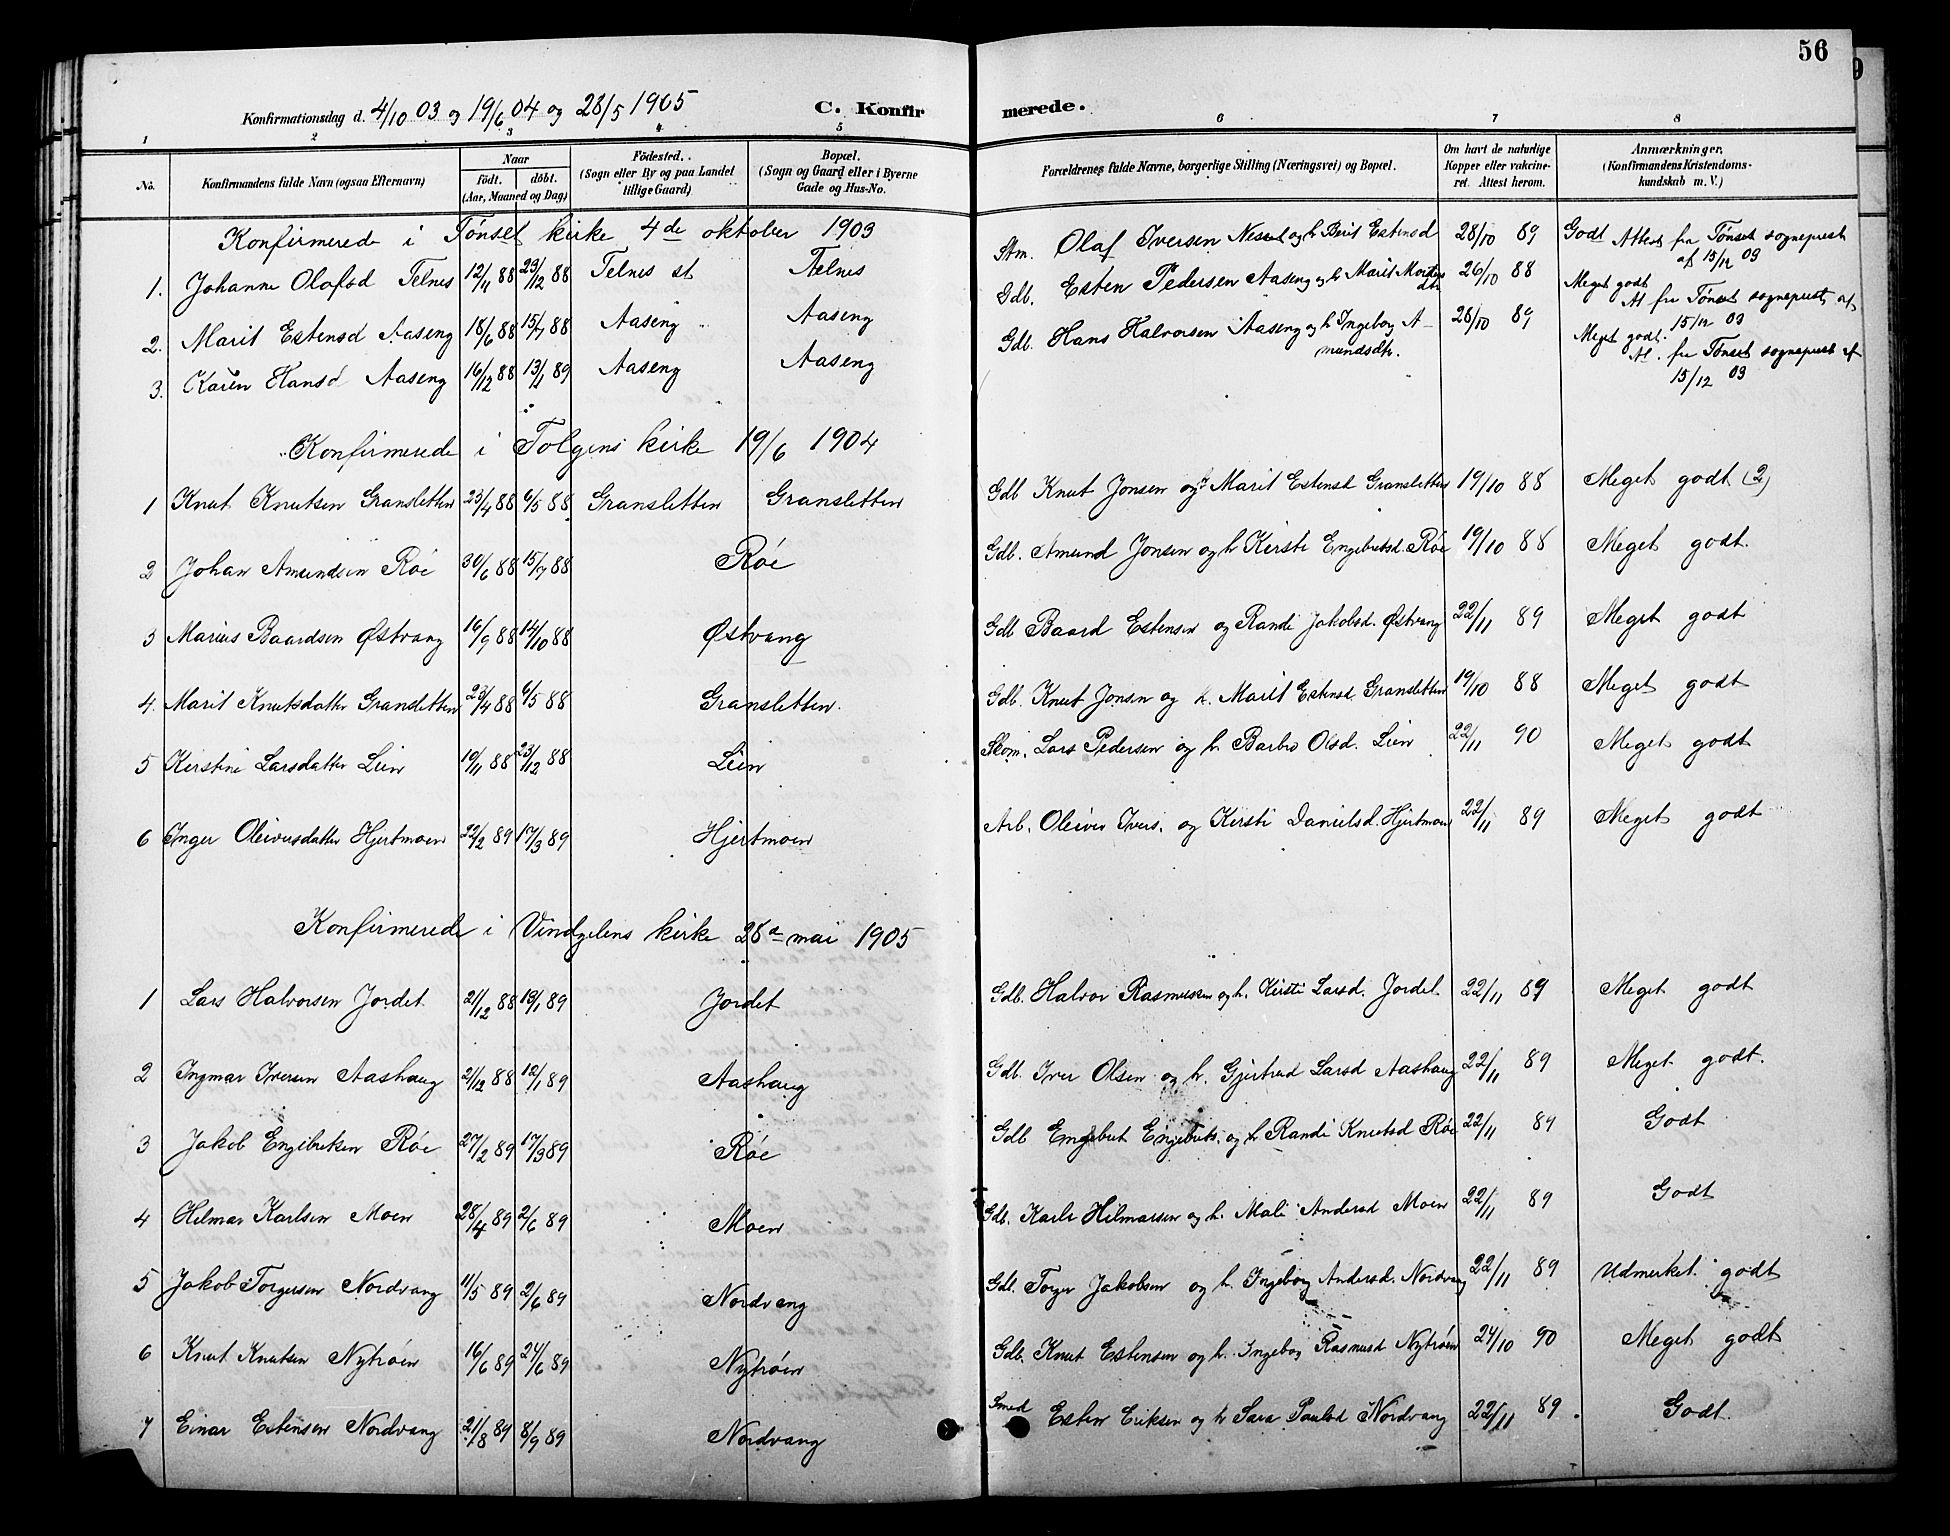 56
Konfirmationsdag d. 4/10 03 og 19/6 04 og 28/5 1905 C. Konfirmerede.
1 2 3 4 5 6 7 8
No. Konfirmandens fulde Navn (ogsaa Efternavn) Naar födt. döbt. (Aar, Maaned og Dag) Födested. (Sogn eller By og paa Landet tillige Gaard) Bopæl. (Sogn og Gaard eller i Byerne Gade og Hus-No. Forældrenes fulde Navne, borgerlige Stilling (Næringsvei) og Bopæl. Om havt de naturlige Kopper eller vakcineret. Attest herom. Anmærkninger, (Konfirmandens Kristendomskundskab m. V.)
Konfirmerede i Tønset kirke 4de oktober 1903
1. Johanne Olafsd Telnes 12/4 88 23/12 88 Telnes st. Telnes Stm. Olaf Iversen Neset og h Berit Estensd 28/10 89 Godt Attest fra Tønset sogneprest af 15/12 03
2. Marit Estensd Aaseng 18/6 88 15/7 88 Aaseng Aaseng Gdb. Esten Pedersen Aaseng og h Marit Mortensdtr 26/10 88 Meget godt At fra Tønset sogneprest af 15/12 03
3. Karen Hansd Aaseng 16/12 88 13/1 89 Aaseng Aaseng Gdb. Hans Halvorsen Aaseng og h Ingebog Amundsdtr. 28/10 89 Meget godt. At. fra Tønset sogneprest af 15/12 03
Konfirmerede i Tolgens kirke 19/6 1904
1 Knut Knutsen Gransletten 23/4 88 6/5 88 Gransletten Gransletten Gdb Knut Jonsen og h Marit Estensd Gransletten 19/10 88 Meget godt (2)
2 Johan Amundsen Röe 30/6 88 15/7 88 Röe Gdb. Amund Jonsen og h Kirsti Engebretsd. Röe 19/10 88 Meget godt.
3 Marius Baardsen Østvang 16/9 88 14/10 88 Østvang Gdb Baard Estensen og Randi Jakobsd. Østvang 22/11 89 Meget godt
4. Marit Knutsdatter Gransletten 23/4 88 6/5 88 Gransletten. Gdb. Knut Jonsen og h. Marit Estensd Gransletten 19/10 88 Meget godt
5 Kirstine Larsdatter Lien 19/11 88 23/12 88 Lien Skom. Lars Pedersen og h Barbro Olsd. Lien 22/11 90 Meget godt
6 Inger Oleiversdatter Hjertmoen 22/2 89 17/3 89 Hjertmoen Arb. Oleiver Ivers. og Kirsti Danielsd. Hjertmoen 22/11 89 Meget godt
Konfirmerede i Vindgelens kirke 28de mai 1905
1 Lars Halvorsen Jordet 21/12 88 13/1 89 Jordet Gdb. Halvor Rasmussen og h. Kirsti Larsd. Jordet 22/11 89 Meget godt
2 Ingmar Iversen Aashaug 21/12 88 12/1 89 Aashaug Gdb. Iver Olsen og h. Gjertrud Larsd Aashaug 22/11 89 Meget godt.
3 Jakob Engebretsen Röe 27/2 89 17/3 89 Röe Gdb Engebret Engebrets. og h Randi Knutsd Röe 22/11 89 Godt
4 Hilmar Karlsen Moen 28/4 89 2/6 89 Moen Gdb. Karl Hilmarsen og h. Mali Andersd Moen 22/11 89 Godt
5 Jakob Torgersen Nordvang 11/5 89 2/6 89 Nordvang Gdb. Torger Jakobsen og h. Ingeborg Andersd. Nordvang 22/11 89 Udmerket godt
6 Knut Knutsen Nytröen 16/6 89 24/6 89 Nytröen Gdb. Knut Estensen og h. Ingebog Rasmusd Nytröen 24/10 90 Meget godt
7 Einar Estensen Nordvang 21/8 89 8/9 89 Nordvang Smed Esten Eriksen og h Sara Paulsd Nordvang 22/11 89. Godt.